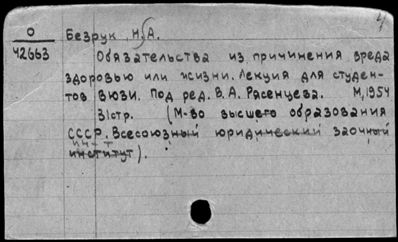 4
О
Безрук, Н.А.
42663
Обязательства из причинения вреда
здоровью или жизни. Лекция для студен-
тов ВЮЗИ. Под ред. В.А. Рясенцева. М, 1954
31стр. (М-во высшего образования
СССР. Всесоюзный юридический заочный
ин-т
институт).